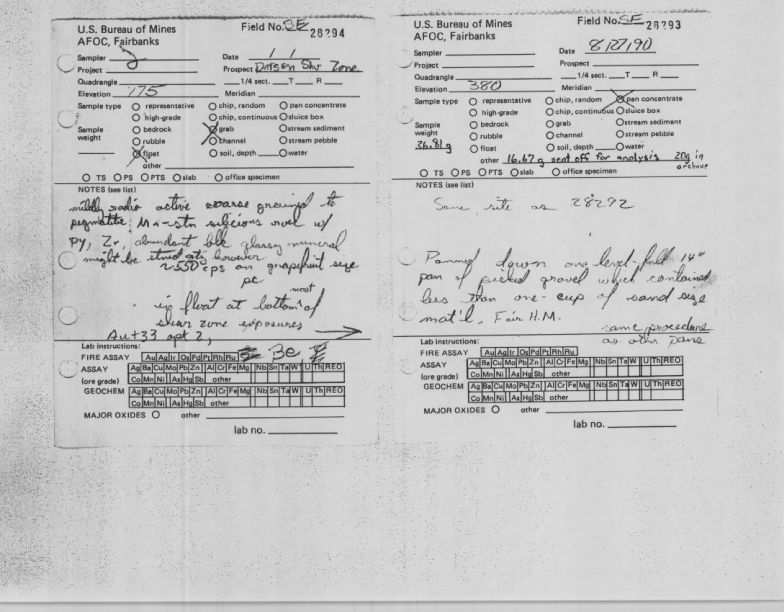 U.S. Bureau of Mines
AFOC, Fairbanks
Field No. SE 28294
Sampler
Date / /
Project
Prospect Dotson Shr Zone
Quadrangle 1/4 sect. T R
Elevation 775 Meridian
Sample type
representative
chip, random
pan concentrate
high-grade
chip, continuous
sluice box
Sample weight
bedrock
grab
stream sediment
rubble
channel
stream pebble
float
soil, depth
water
other
TS PS PTS slab office specimen
NOTES (see list)
mildly radio active coarse grained to
pegmatitic Mn-stn silicious w/
Py, Zr, abundant blk glassy mineral
might be qtz however
~550 cps on grapefruit size
pc
most
in float at bottom of
shear zone exposures
Au+33 apt 2,
Lab instructions:
FIRE ASSAY Au Ag Ir Os Pd Pt Rh Ru Be
ASSAY Ag Ba Cu Mo Pb Zn Al Cr Fe Mg Nb Sn Ta W U Th REO
(ore grade) Co Mn Ni As Hg Sb other
GEOCHEM Ag Ba Cu Mo Pb Zn Al Cr Fe Mg Nb Sn Ta W U Th REO
Co Mn Ni As Hg Sb other
MAJOR OXIDES other
lab no.
U.S. Bureau of Mines
AFOC, Fairbanks
Field No. SE 28293
Sampler
Date 8/27/90
Project
Prospect
Quadrangle 1/4 sect. T R
Elevation 380 Meridian
Sample type
representative
chip, random
pan concentrate
high-grade
chip, continuous
sluice box
Sample weight
bedrock
grab
stream sediment
26.81g
rubble
channel
stream pebble
float
soil, depth
water
other 16.67g sent off for analysis 20g in archive
TS PS PTS slab office specimen
NOTES (see list)
Same site as 28292
Panned down one level-full 14"
pan of picked gravel which contained
less than one-cup of sand size
mat'l. Fair H.M.
same procedure
as other pans
Lab instructions:
FIRE ASSAY Au Ag Ir Os Pd Pt Rh Ru
ASSAY Ag Ba Cu Mo Pb Zn Al Cr Fe Mg Nb Sn Ta W U Th REO
(ore grade) Co Mn Ni As Hg Sb other
GEOCHEM Ag Ba Cu Mo Pb Zn Al Cr Fe Mg Nb Sn Ta W U Th REO
Co Mn Ni As Hg Sb other
MAJOR OXIDES other
lab no.